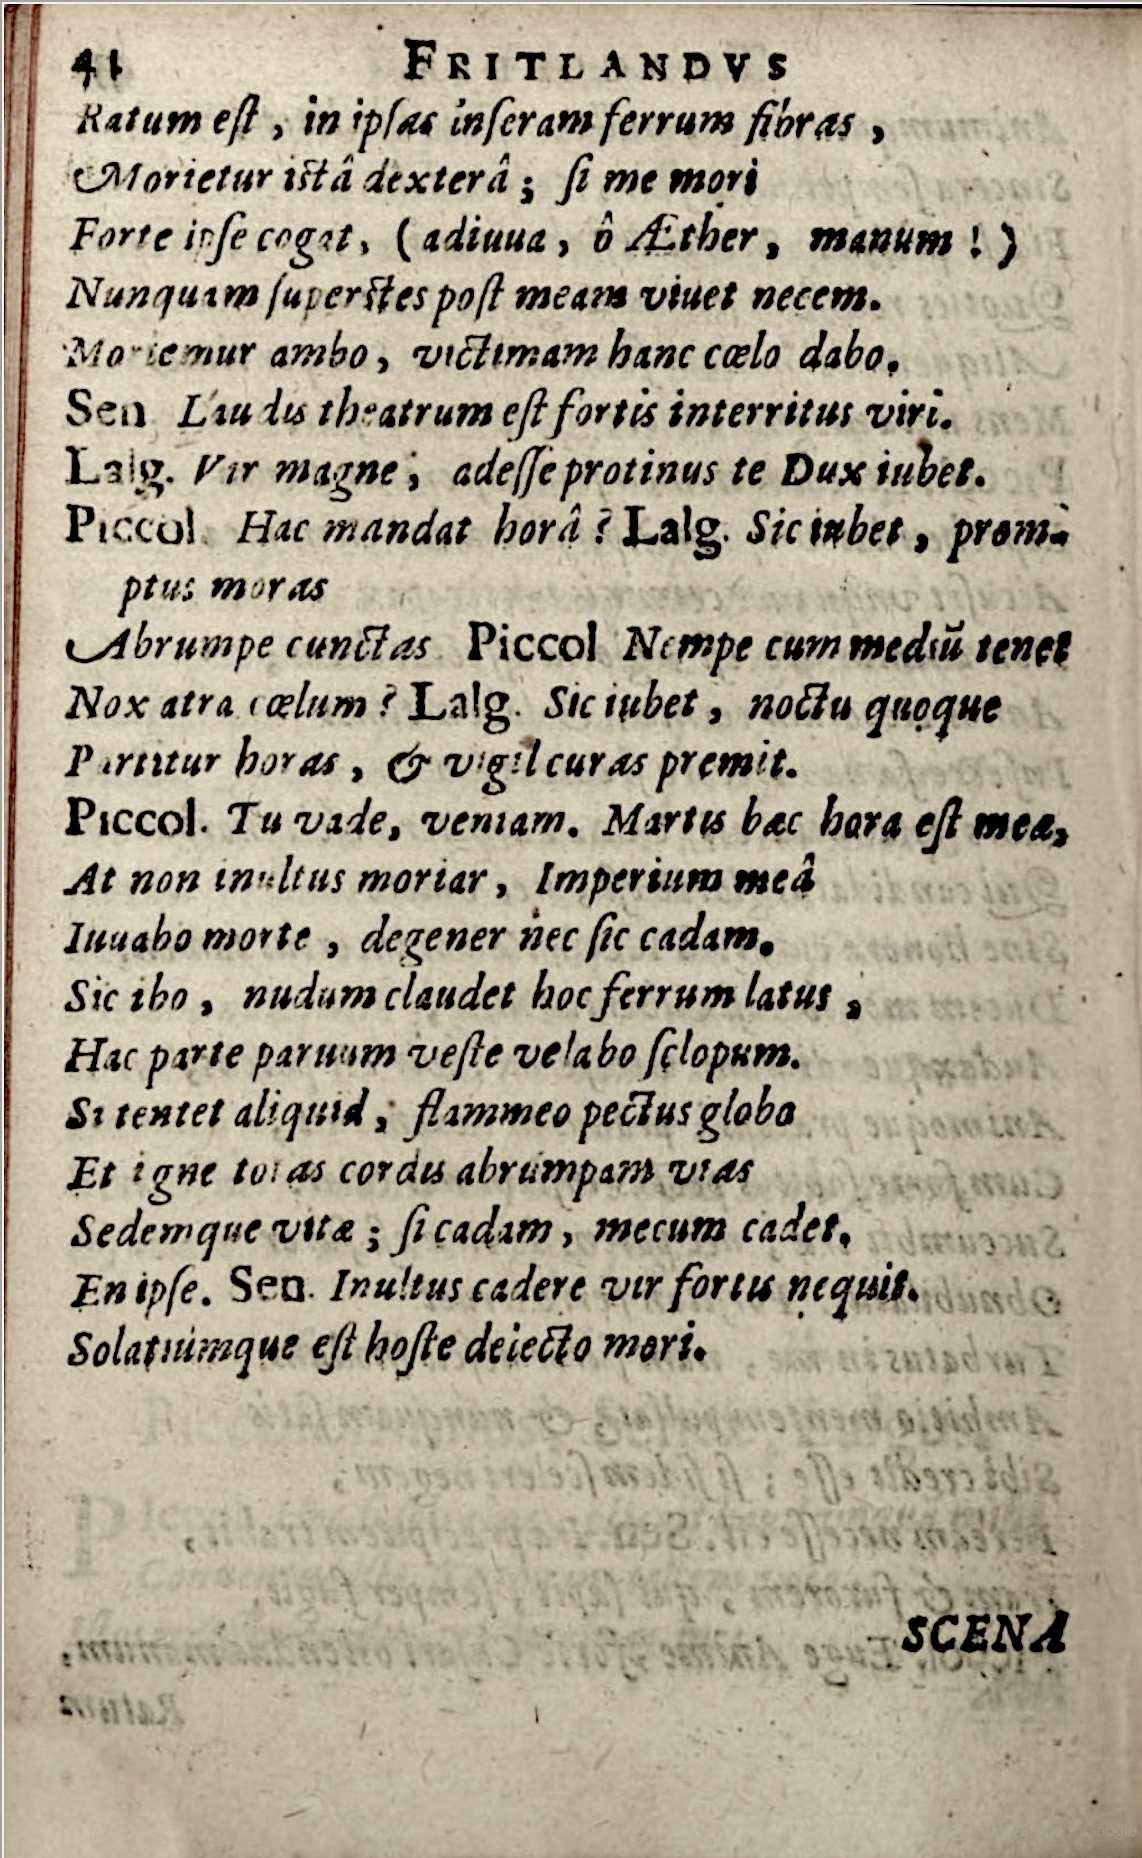 41 FRITLANDVS
Ratum eſt, in ipſas inſeram ferrum fibras,
Morietur iſtâ dexterâ; ſi me mori
Forte ipſe cogat, (adiuua, ô Æther, manum!)
Nunquam ſuperſtes poſt meam viuet necem.
Moriemur ambo, victimam hanc cœlo dabo.
Sen Laudis theatrum eſt fortis interritus viri.
Lalg. Vir magne; adeſſe protinus te Dux iubet.
Piccol. Hac mandat horâ? Lalg. Sic iubet, prom-
ptus moras
Abrumpe cunctas Piccol Nempe cum mediū tenet
Nox atra cœlum? Lalg. Sic iubet, noctu quoque
Partitur horas, & vigil curas premit.
Piccol. Tu vade, veniam. Martis hæc hora eſt mea,
At non inultus moriar, Imperium meâ
Iuuabo morte, degener nec ſic cadam.
Sic ibo, nudum claudet hoc ferrum latus,
Hac parte paruum veſte velabo ſclopum.
Si tentet aliquid, flammeo pectus globo
Et igne totas cordis abrumpam vias
Sedemque vitæ; ſi cadam, mecum cadet.
En ipſe. Sen. Inultus cadere vir fortis nequit.
Solatiúmque eſt hoſte deiecto mori.
SCENA